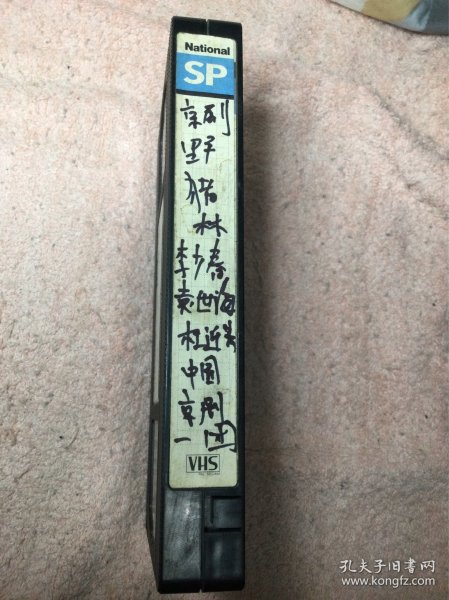 National
SP
京剧
野
猪
林
李少春
袁世海
杜近芳
中国
京剧
一团
VHS
孔夫子旧书网
www.kongfz.com